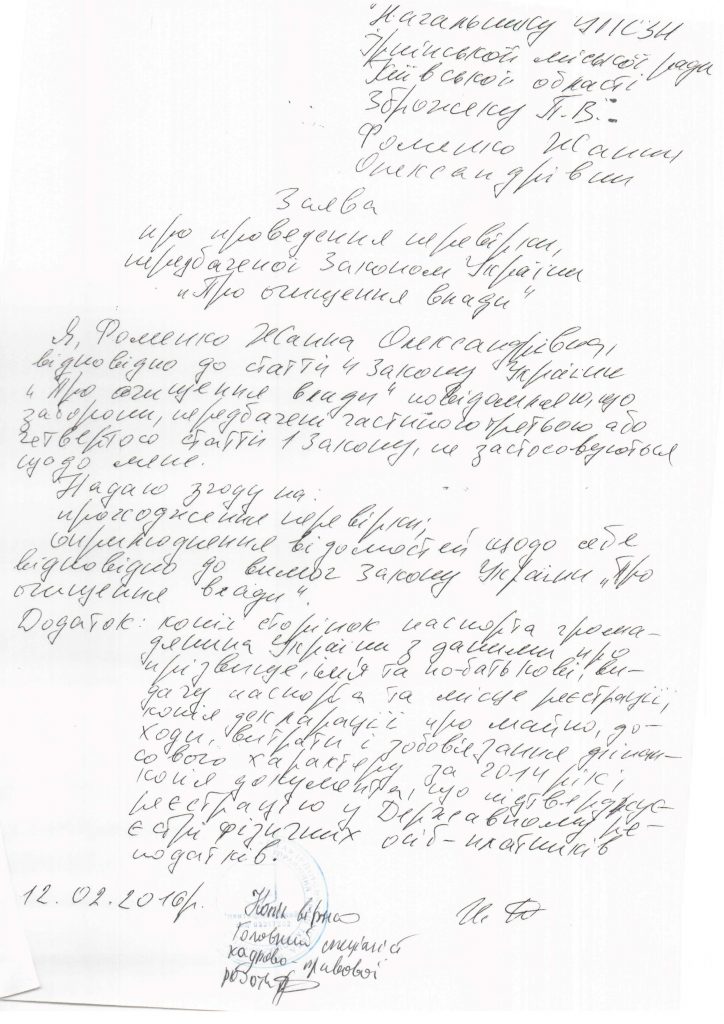 Начальнику УПСЗН
Ірпінської міської ради
Київської області
Зброжеку П.В.
Фоменко Жанни
Олександрівни
Заява
про проведення перевірки,
передбаченої Законом України
„Про очищення влади"
Я, Фоменко Жанна Олександрівна,
відповідно до статті 4 Закону України
„Про очищення влади" повідомляю, що
заборони, передбачені частиною третьою або
четвертою статті 1 Закону, не застосовуються
щодо мене.
Надаю згоду на:
проходження перевірки;
оприлюднення відомостей щодо себе
відповідно до вимог Закону України „Про
очищення влади".
Додаток: копія сторінок паспорта грома-
дянина України з даними про
прізвище, ім'я та по-батькові, ви-
дачу паспорта та місце реєстрації,
копія декларації про майно, до-
ходи, витрати і зобов'язання фінан-
сового характеру за 2014 рік;
копія документа, що підтверджує
реєстрацію у Державному ре-
єстрі фізичних осіб-платників
податків.
12.02.2016р.
Копія вірна
Головний спеціаліст
кадрово-правової
роботи